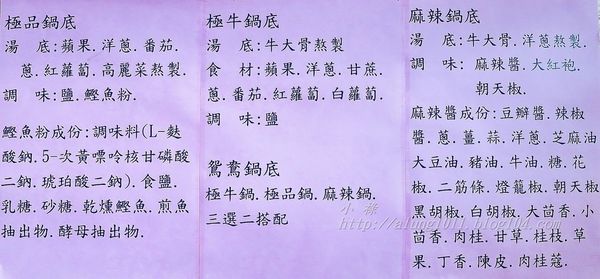 極品鍋底
湯 底:蘋果.洋蔥.番茄.
蔥.紅蘿蔔.高麗菜熬製
調 味:鹽.鰹魚粉.
鰹魚粉成份:調味料(L-麩
酸鈉.5-次黃嘌呤核甘磷酸
二鈉.琥珀酸二鈉).食鹽.
乳糖.砂糖.乾燥鰹魚.煎魚
抽出物.酵母抽出物.
極牛鍋底
湯 底:牛大骨熬製
食 材:蘋果.洋蔥.甘蔗.
蔥.番茄.紅蘿蔔.白蘿蔔.
調 味:鹽
鴛鴦鍋底
極牛鍋.極品鍋.麻辣鍋.
三選二搭配
麻辣鍋底
湯 底:牛大骨.洋蔥熬製.
調 味: 麻辣醬.大紅袍.
朝天椒
麻辣醬成份:豆瓣醬.辣椒
醬.蔥.薑.蒜.洋蔥.芝麻油
大豆油.豬油.牛油.糖.花
椒.二筋條.燈籠椒.朝天椒
黑胡椒.白胡椒.大茴香.小
茴香.肉桂.甘草.桂枝.草
果.丁香.陳皮.肉桂蔻.
小蒜
http://alung1011.blog104.com